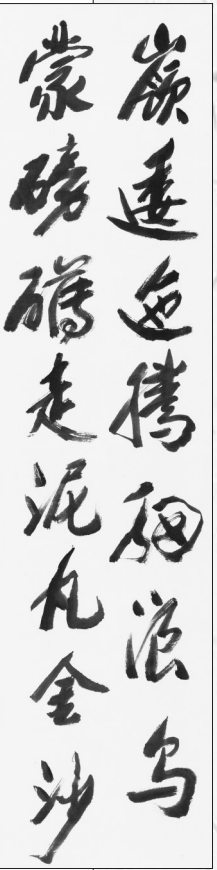 嶺逶迤腾细浪乌
蒙磅礴走泥丸金沙